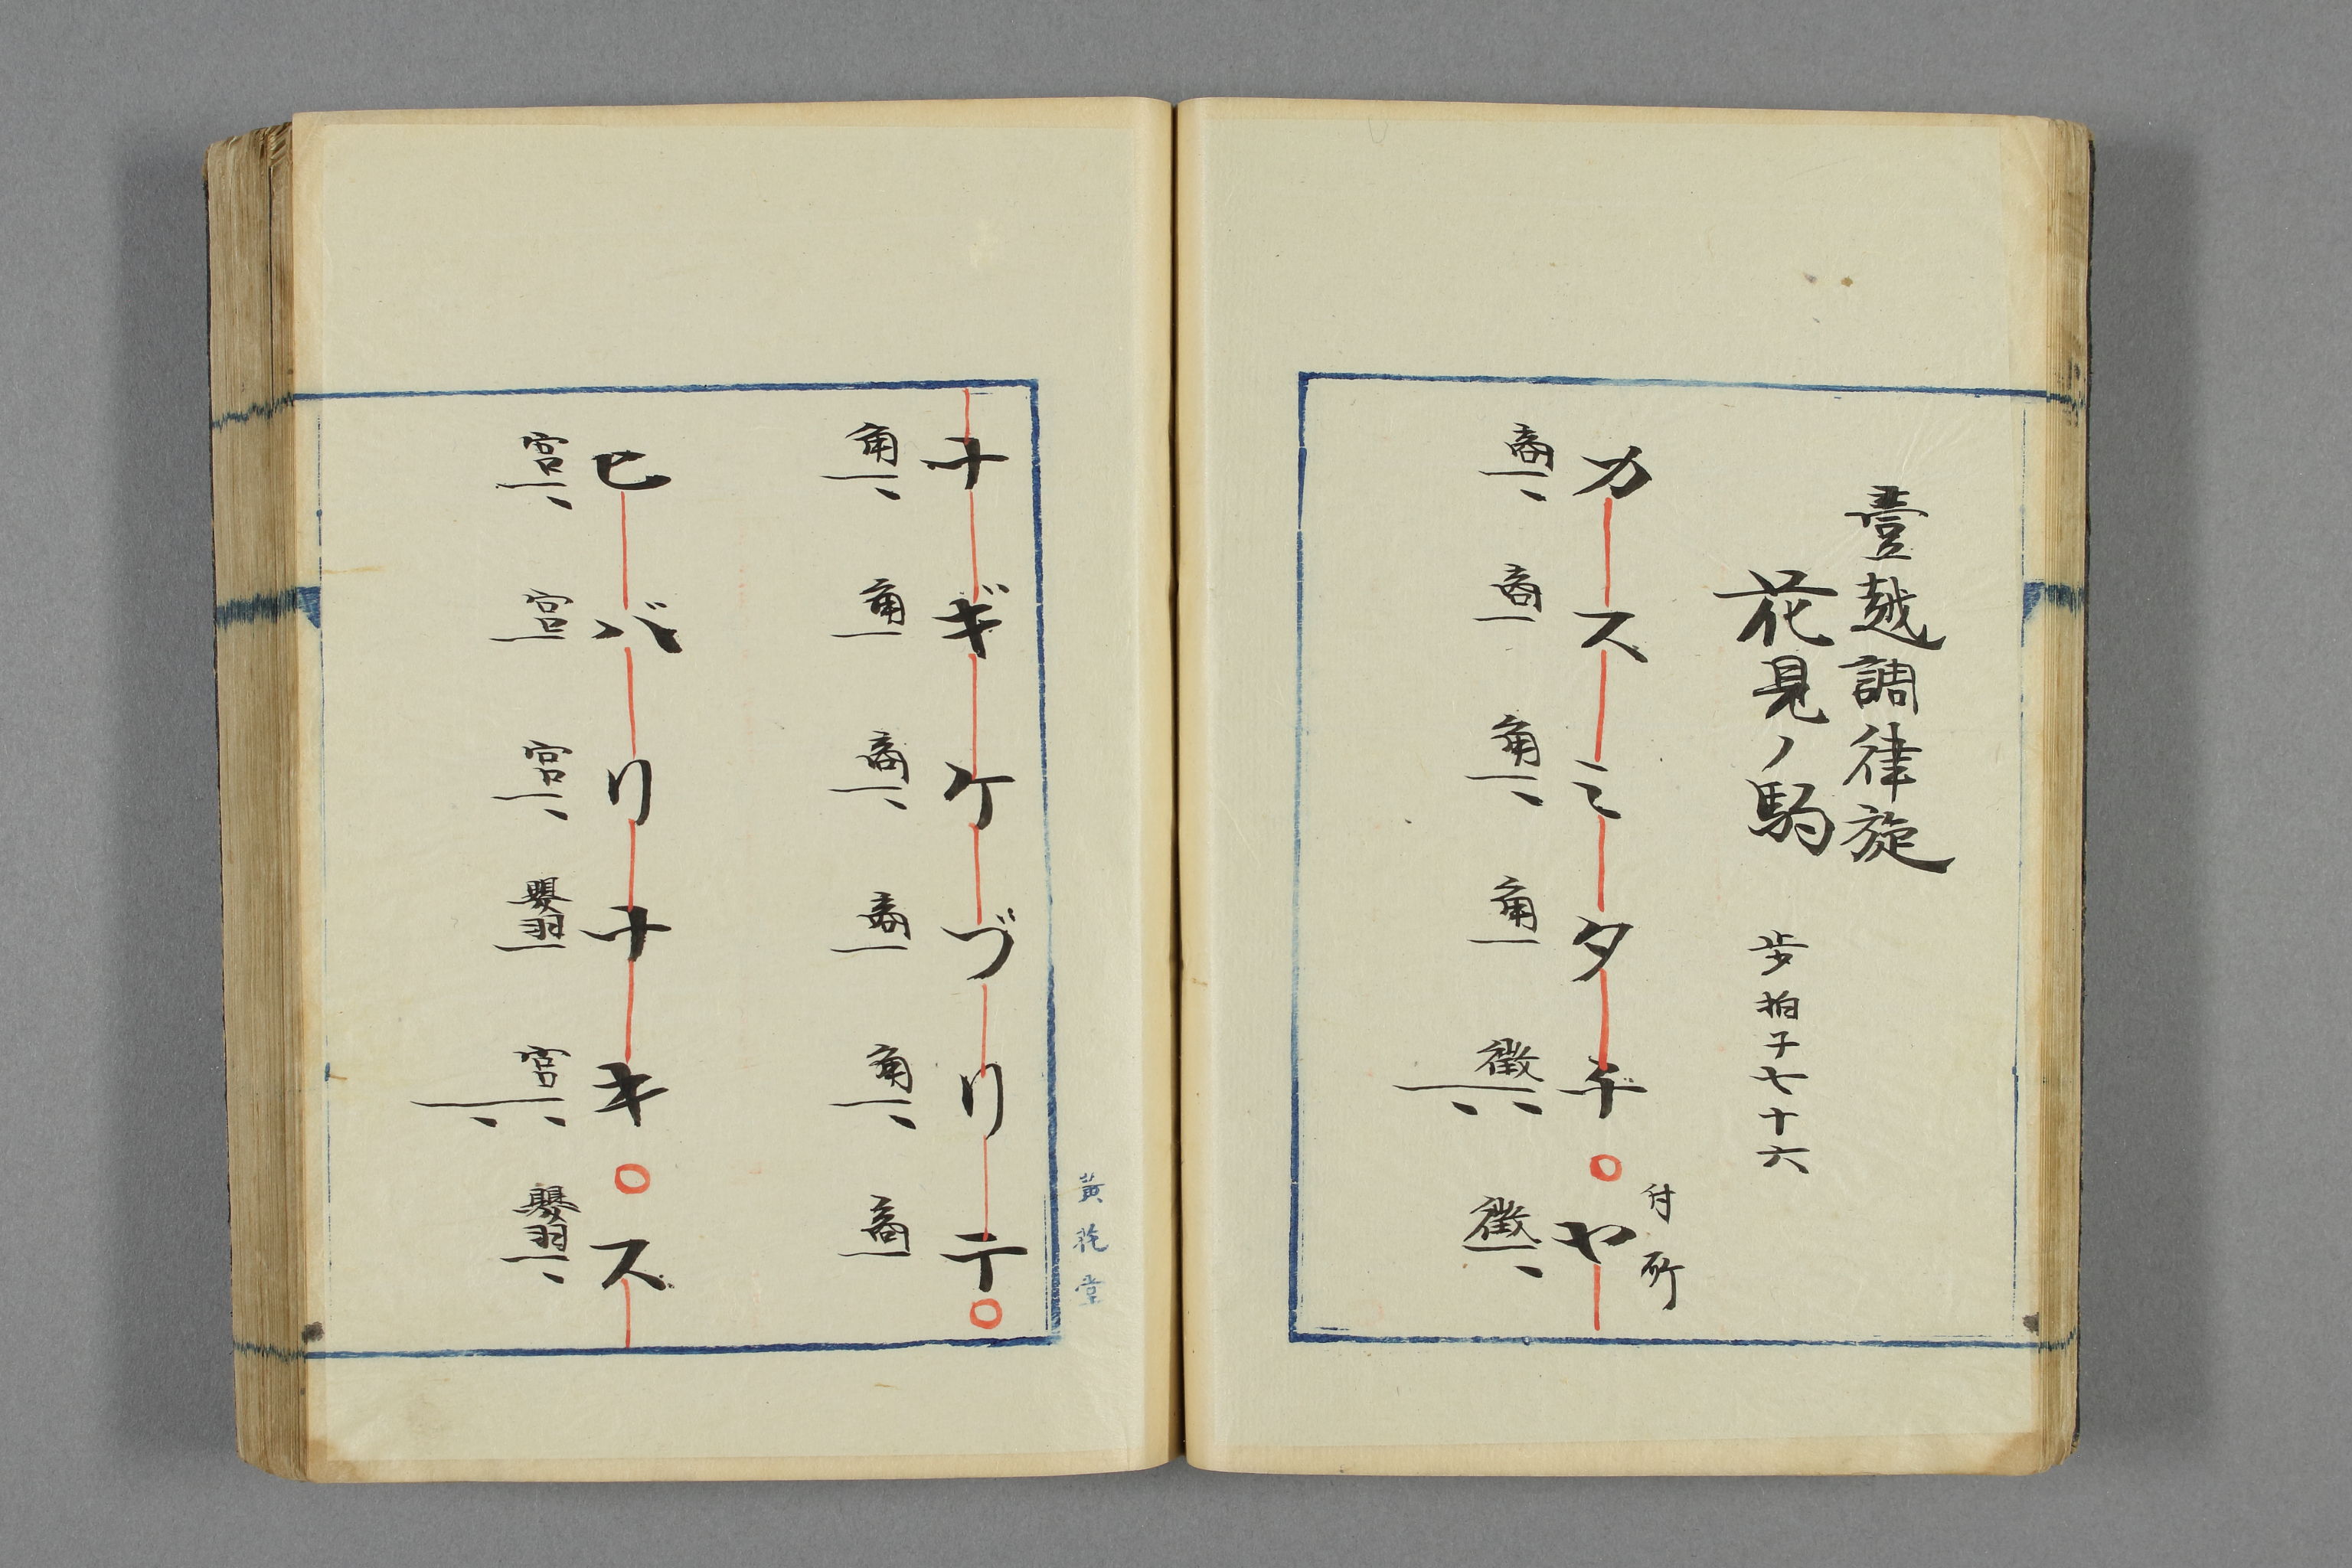 壹越調律旋
花見ノ駒 歩拍子七十六
付所
カスミタチ○ヤ
商 商 角 角 徴 徴
ナギケヅリテ○
角 角 商 商 角 商
ヒバリナキ○ス
宮 宮 宮 嬰羽 宮 嬰羽